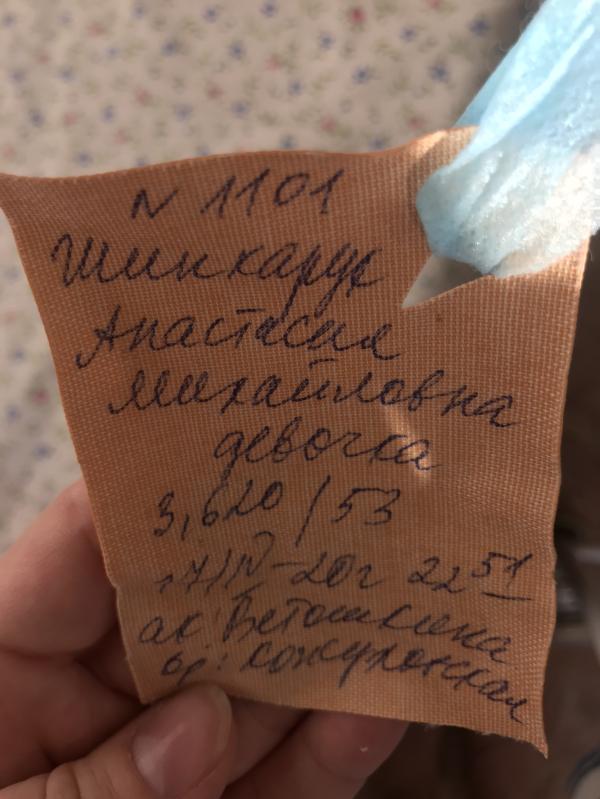 N 1101
Шинкарук
Анастасия
Михайловна
девочка
3,620 / 53
17/IV-20г 22 51
ак: Ветошкина
вр: Кожуховская